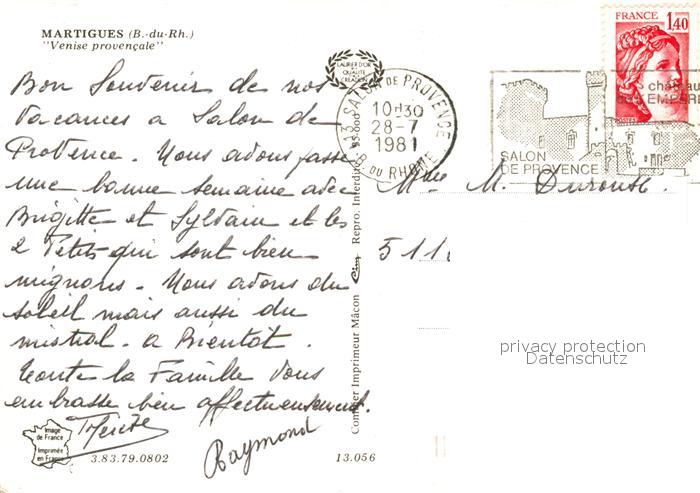 MARTIGUES (B.-du-Rh.)
"Venise provençale"
Bon Souvenir de nos
vacances a Salon de
Provence. Nous avons passé
une bonne semaine avec
Brigitte et Sylvain et les
2 Petits qui sont bien
mignons. Nous avons du
soleil mais aussi du
mistral. a Bientôt.
Toute la Famille vous
embrasse bien affectueusement.
Raymond
Image
de France
Imprimée
en France
3.83.79.0802
13.056
LAURIER D'OR
DE
QUALITÉ
CREATION
Combier Imprimeur Mâcon
Cim
Repro. Interdite
13 SALON DE PROVENCE
10H30
28-7
1981
B. DU RHONE
SALON
DE PROVENCE
château
EMPERI
FRANCE
1,40
Mme M.
511
privacy protection
Datenschutz